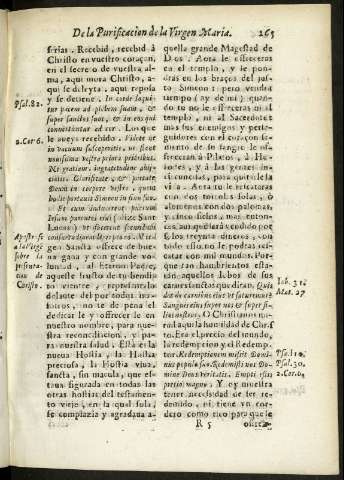 De la Purificacion de la Virgen Maria. 265
sirias. Recebid, recebid à
Christo en vuestro coraçon,
en el secreto de vuestra al
ma, aqui mora Christo, a-
qui se deleyta, aqui reposa
y se detiene. In corde loque
tur pacem ad plebem suam, &
super sanctos suos, & in eos qui
convertuntur ad cor. Los que
le aveys recebido. Videte ne
in vacuum susceperitis, ne sicut
Glorificate, & portate
Deum in corpore vestro, quem
hodie portavit Simeon in suis
Et cum inducerent puerum
Iesum parentes eius (dize Sant
Lucas) ut facerent secundum
gen Sancta offrece de bue-
na gana y con grande vo-
luntad, al Eterno Padre,
aqueste fructo de su bendito
vientre, representalo
delante del por todos no-
sotros, no te de pena el
dedicarle y offrecerle en
nuestro nombre, para nue-
stra reconciliacion, y pa-
ra nuestra salud. Esta es la
nueva Hostia, la Hostia
preciosa, la Hostia viva,
sancta, sin macula, que es-
tava figurada en todas las
otras hostias del testamen-
to viejo, en la qual solo
se complazia y agradava a-
Psal. 82.
2. Cor. 6.
sobre la
Christo.
quella grande Magestad de
Dios. Aora le offreceras
en el templo, y le pon-
dras en los braços del jus-
to Simeon: pero vendra
tiempo (ay de mi) quan-
do tu no le offreceras en el
templo, ni al Sacerdote
mas sus enemigos y perse-
guidores con el coraçon se-
diento de su sangre le of-
freceran à Pilatos, à He-
rodes, y à las gentes in-
circuncisas, para quitarle la
vida. Aora tu le rescataras
con dos tortolas solas, ò
alomenos con dos palomas,
y cinco siclos, mas enton-
ces, aun que diera el mundo por
el, los treynta dineros, con
todo esso no le podras res-
catar con mil mundos. Por-
que tan hambrientos esta-
ran aquellos lobos de sus
carnes sanctas que diran. Quis
det de carnibus eius ut saturemur?
Sanguis eius super nos & super fi-
lios nostros. O Christianos mi-
rad aqui la humildad de Chris
to. Era el precio del mundo,
la redempcion y el Redemptor.
Redemptionem misit Domi-
nus populo suo. Redemisti nos Do-
mine Deus veritatis. Empti estis
pretio magno: Y oy muestra
tener necesidad de ser re-
demido, ni tiene un cor-
dero como rico para que le
Iob. 31.
Mat. 27
Psal. 110.
Psal. 30.
R 5